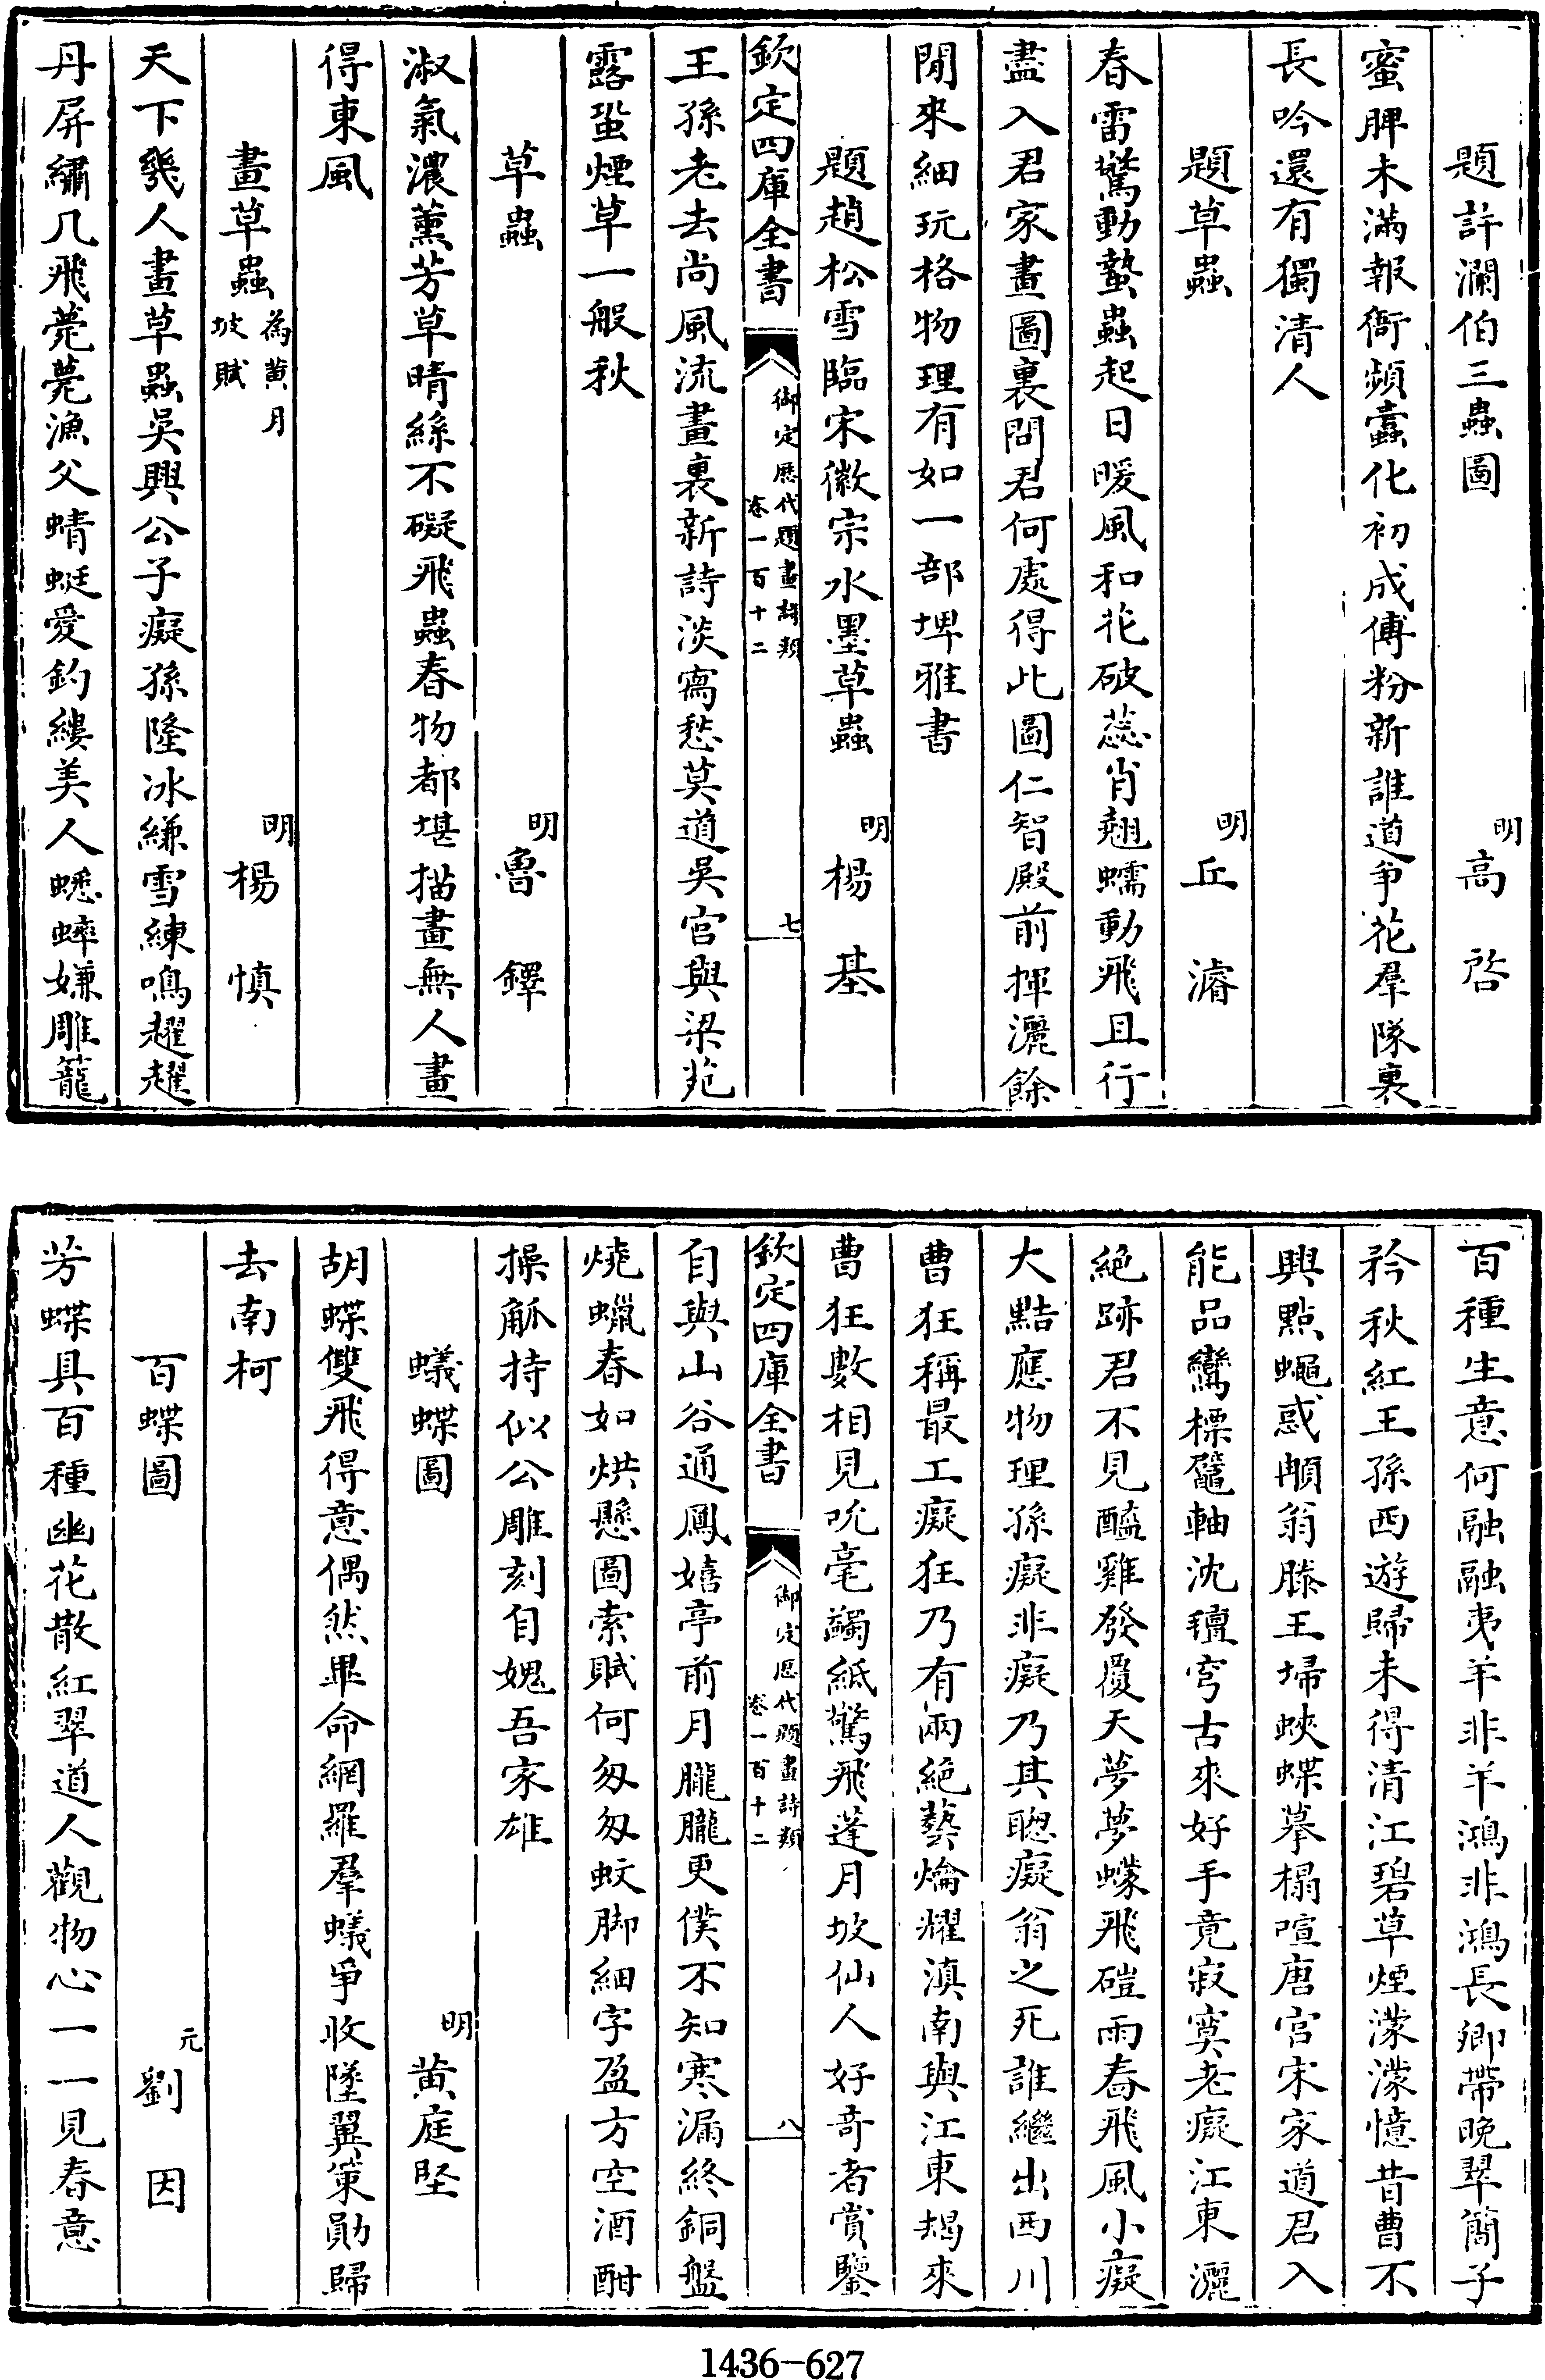 題許瀾伯三蟲圖　明高啓
蜜脾未滿報衙頻蠧化初成傅粉新誰道爭花羣隊裏
長吟還有獨清人
題草蟲　明丘濬
春雷驚動蟄蟲起日暖風和花破蕊肖翹蠕動飛且行
盡入君家畫圖裏問君何處得此圖仁智殿前揮灑餘
閒來細玩格物理有如一部埤雅書
題趙松雪臨宋徽宗水墨草蟲　明楊基
欽定四庫全書　御定歴代題畫詩類　卷一百十二　七
王孫老去尚風流畫裏新詩淡寫愁莫道吳宮與梁苑
露蛩煙草一般秋
草蟲　明魯鐸
淑氣濃薰芳草晴絲不礙飛蟲春物都堪描畫無人畫
得東風
畫草蟲為黄月坡賦　明楊慎
天下幾人畫草蟲吳興公子癡孫隆冰縑雪練鳴趯趯
丹屏繡几飛薨薨漁父蜻蜓愛釣縷美人蟋蟀嫌雕籠
百種生意何融融夷羊非羊鴻非鴻長卿帶晚翠簡子
矜秋紅王孫西遊歸未得清江碧草煙濛濛憶昔曹不
興點蠅惑顺翁滕王埽蛺蝶摹榻喧唐宫宋家道君入
能品鸞標鼊軸沈𥡴穹古來好手竟寂寞老癡江東灑
絶跡君不見醯雞發覆天夢夢蠓飛磑雨舂飛風小癡
大點應物理孫癡非癡乃其聰癡翁之死誰繼出西川
曹狂稱最工癡狂乃有兩絶藝爚耀滇南與江東朅來
曹狂數相見吮毫蠲紙驚飛蓬月坡仙人好奇者賞鑒
欽定四庫全書　御定歴代題畫詩類　卷一百十二　八
自與山谷通鳳嬉亭前月朧朧更僕不知寒漏終銅盤
燒蠟春如烘懸圖索賦何匆匆蚊脚細字盈方空酒酣
操觚持似公雕刻自媿吾家雄
蟻蝶圖　明黄庭堅
胡蝶雙飛得意偶然畢命網羅羣蟻爭收墜翼策勛歸
去南柯
百蝶圖　元劉因
芳蝶具百種幽花散紅翠道人觀物心一一見春意
1436-627